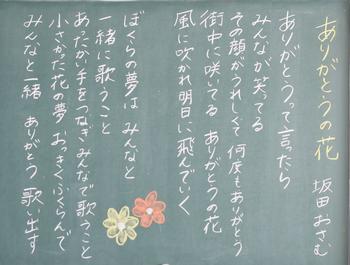 ありがとうの花
坂田おさむ
ありがとうって言ったら
みんなが笑ってる
その顔がうれしくて 何度もありがとう
街中に咲いてる ありがとうの花
風に吹かれ明日に飛んでいく
ぼくらの夢は みんなと
一緒に歌うこと
あったかい手をつなぎ みんなで歌うこと
小さかった花の夢 おっきくふくらんで
みんなと一緒 ありがとう 歌い出す